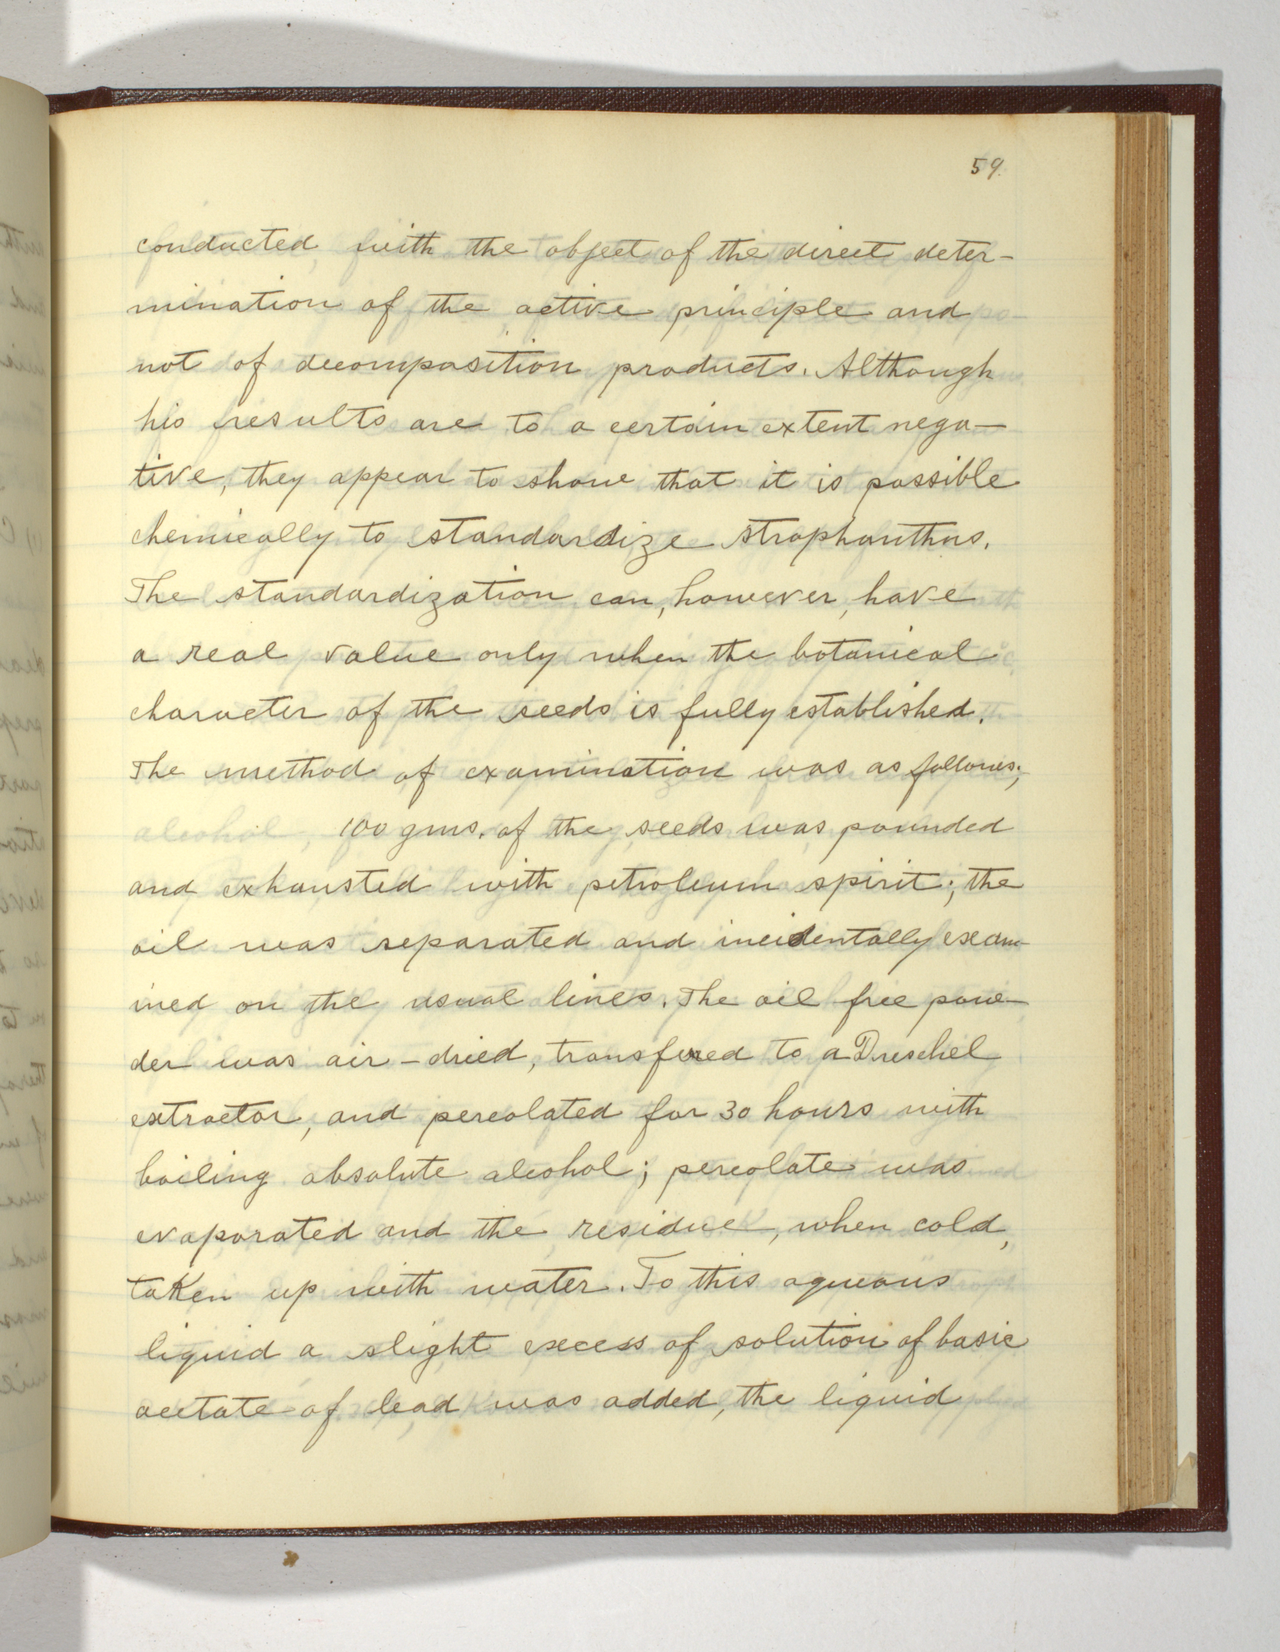 59.
conducted with the object of the direct deter-
mination of the active principle and
not of decomposition products. Although
his results are to a certain extent nega-
tive, they appear to show that it is possible
chemically to standardize strophanthus.
The standardization can, however, have
a real value only when the botanical
character of the seeds is fully established.
The method of examination was as follows;
100 gms. of the seeds was pounded
and exhausted with petroleum spirit; the
oil was separated and incidentally exam-
ined on the usual lines. The oil free pow-
der was air-dried, transfered to a Dreschel
extractor, and percolated for 30 hours with
boiling absolute alcohol; percolate was
evaporated and the residue, when cold,
taken up with water. To this aqueous
liquid a slight excess of solution of basic
acetate of lead was added, the liquid